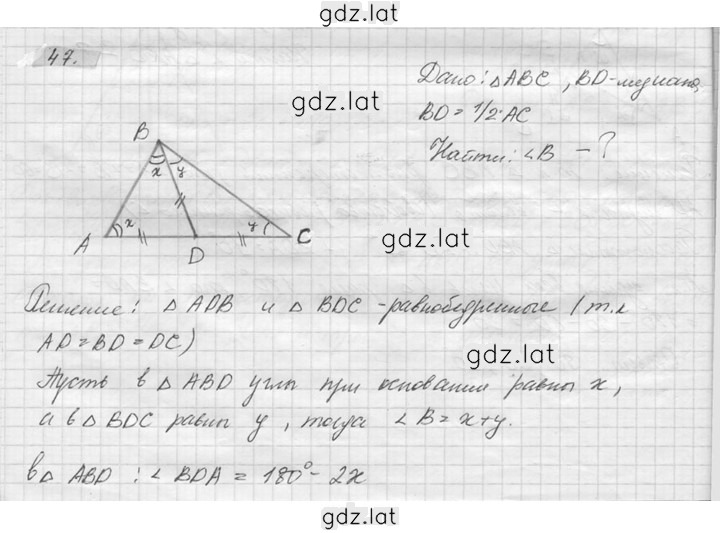 gdz.lat
47.
Дано: △ABC, BD-медиана,
BD = 1/2·AC
Найти: ∠B - ?
gdz.lat
B
x y
A x y C
D
gdz.lat
Решение: △ ADB и △ BDC -равнобедренные (т.к
AD = BD = DC)
gdz.lat
Пусть в △ ABD углы при основании равны x,
а в △ BDC равны y, тогда ∠B = x+y.
в △ ABD : ∠ BDA = 180° - 2x
gdz.lat